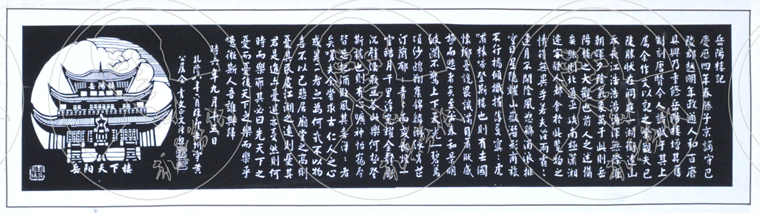 岳陽樓記
慶曆四年春滕子京謫守巴
陵郡越明年政通人和百廢
具興乃重修岳陽樓增其舊
制刻唐賢今人詩賦于其上
屬余作文以記之余觀夫巴
陵勝狀在洞庭一湖銜遠山
吞長江浩浩湯湯橫無際涯
朝暉夕陰氣象萬千此則岳
陽樓之大觀也前人之述備
矣然則北通巫峽南極瀟湘
遷客騷人多會於此覽物之
情得無異乎若夫霪雨霏霏
連月不開陰風怒號濁浪排
空日星隱耀山岳潛形商旅
不行檣傾楫摧薄暮冥冥虎
嘯猿啼登斯樓也則有去國
懷鄉憂讒畏譏滿目蕭然感
極而悲者矣至若春和景明
波瀾不驚上下天光一碧萬
頃沙鷗翔集錦鱗游泳岸芷
汀蘭郁郁青青而或長煙一
空皓月千里浮光躍金靜影
沉璧漁歌互答此樂何極登
斯樓也則有心曠神怡寵辱
皆忘把酒臨風其喜洋洋者
矣嗟夫余嘗求古仁人之心
或異二者之為何哉不以物
喜不以己悲居廟堂之高則
憂其民處江湖之遠則憂其
君是進亦憂退亦憂然則何
時而樂耶其必曰先天下之
憂而憂後天下之樂而樂乎
噫微斯人吾誰與歸
時六年九月十五日
岳陽樓
岳陽天下樓